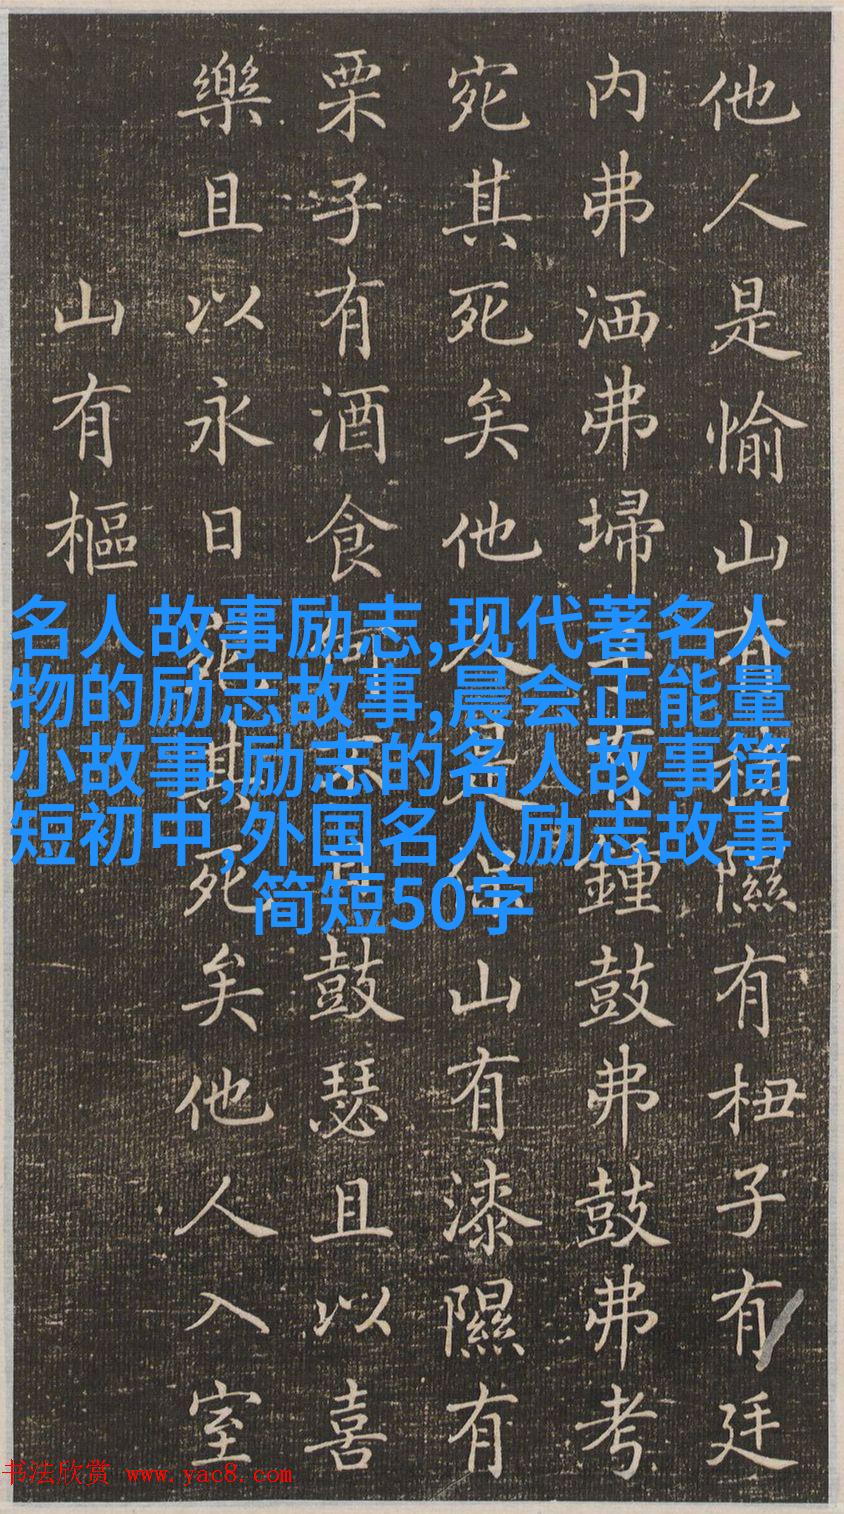 他人是愉山有栲隰有杻子有廷
内弗洒弗埽子有鍾鼓弗鼓弗考
宛其死矣他人是保山有漆隰有
栗子有酒食何不日鼓瑟且以喜
樂且以永日宛其死矣他人入室
山有樞
名人故事励志,现代著名人
物的励志故事,晨会正能量
小故事,励志的名人故事简
短初中,外国名人励志故事
简短50字
书法欣赏 www.yac8.com